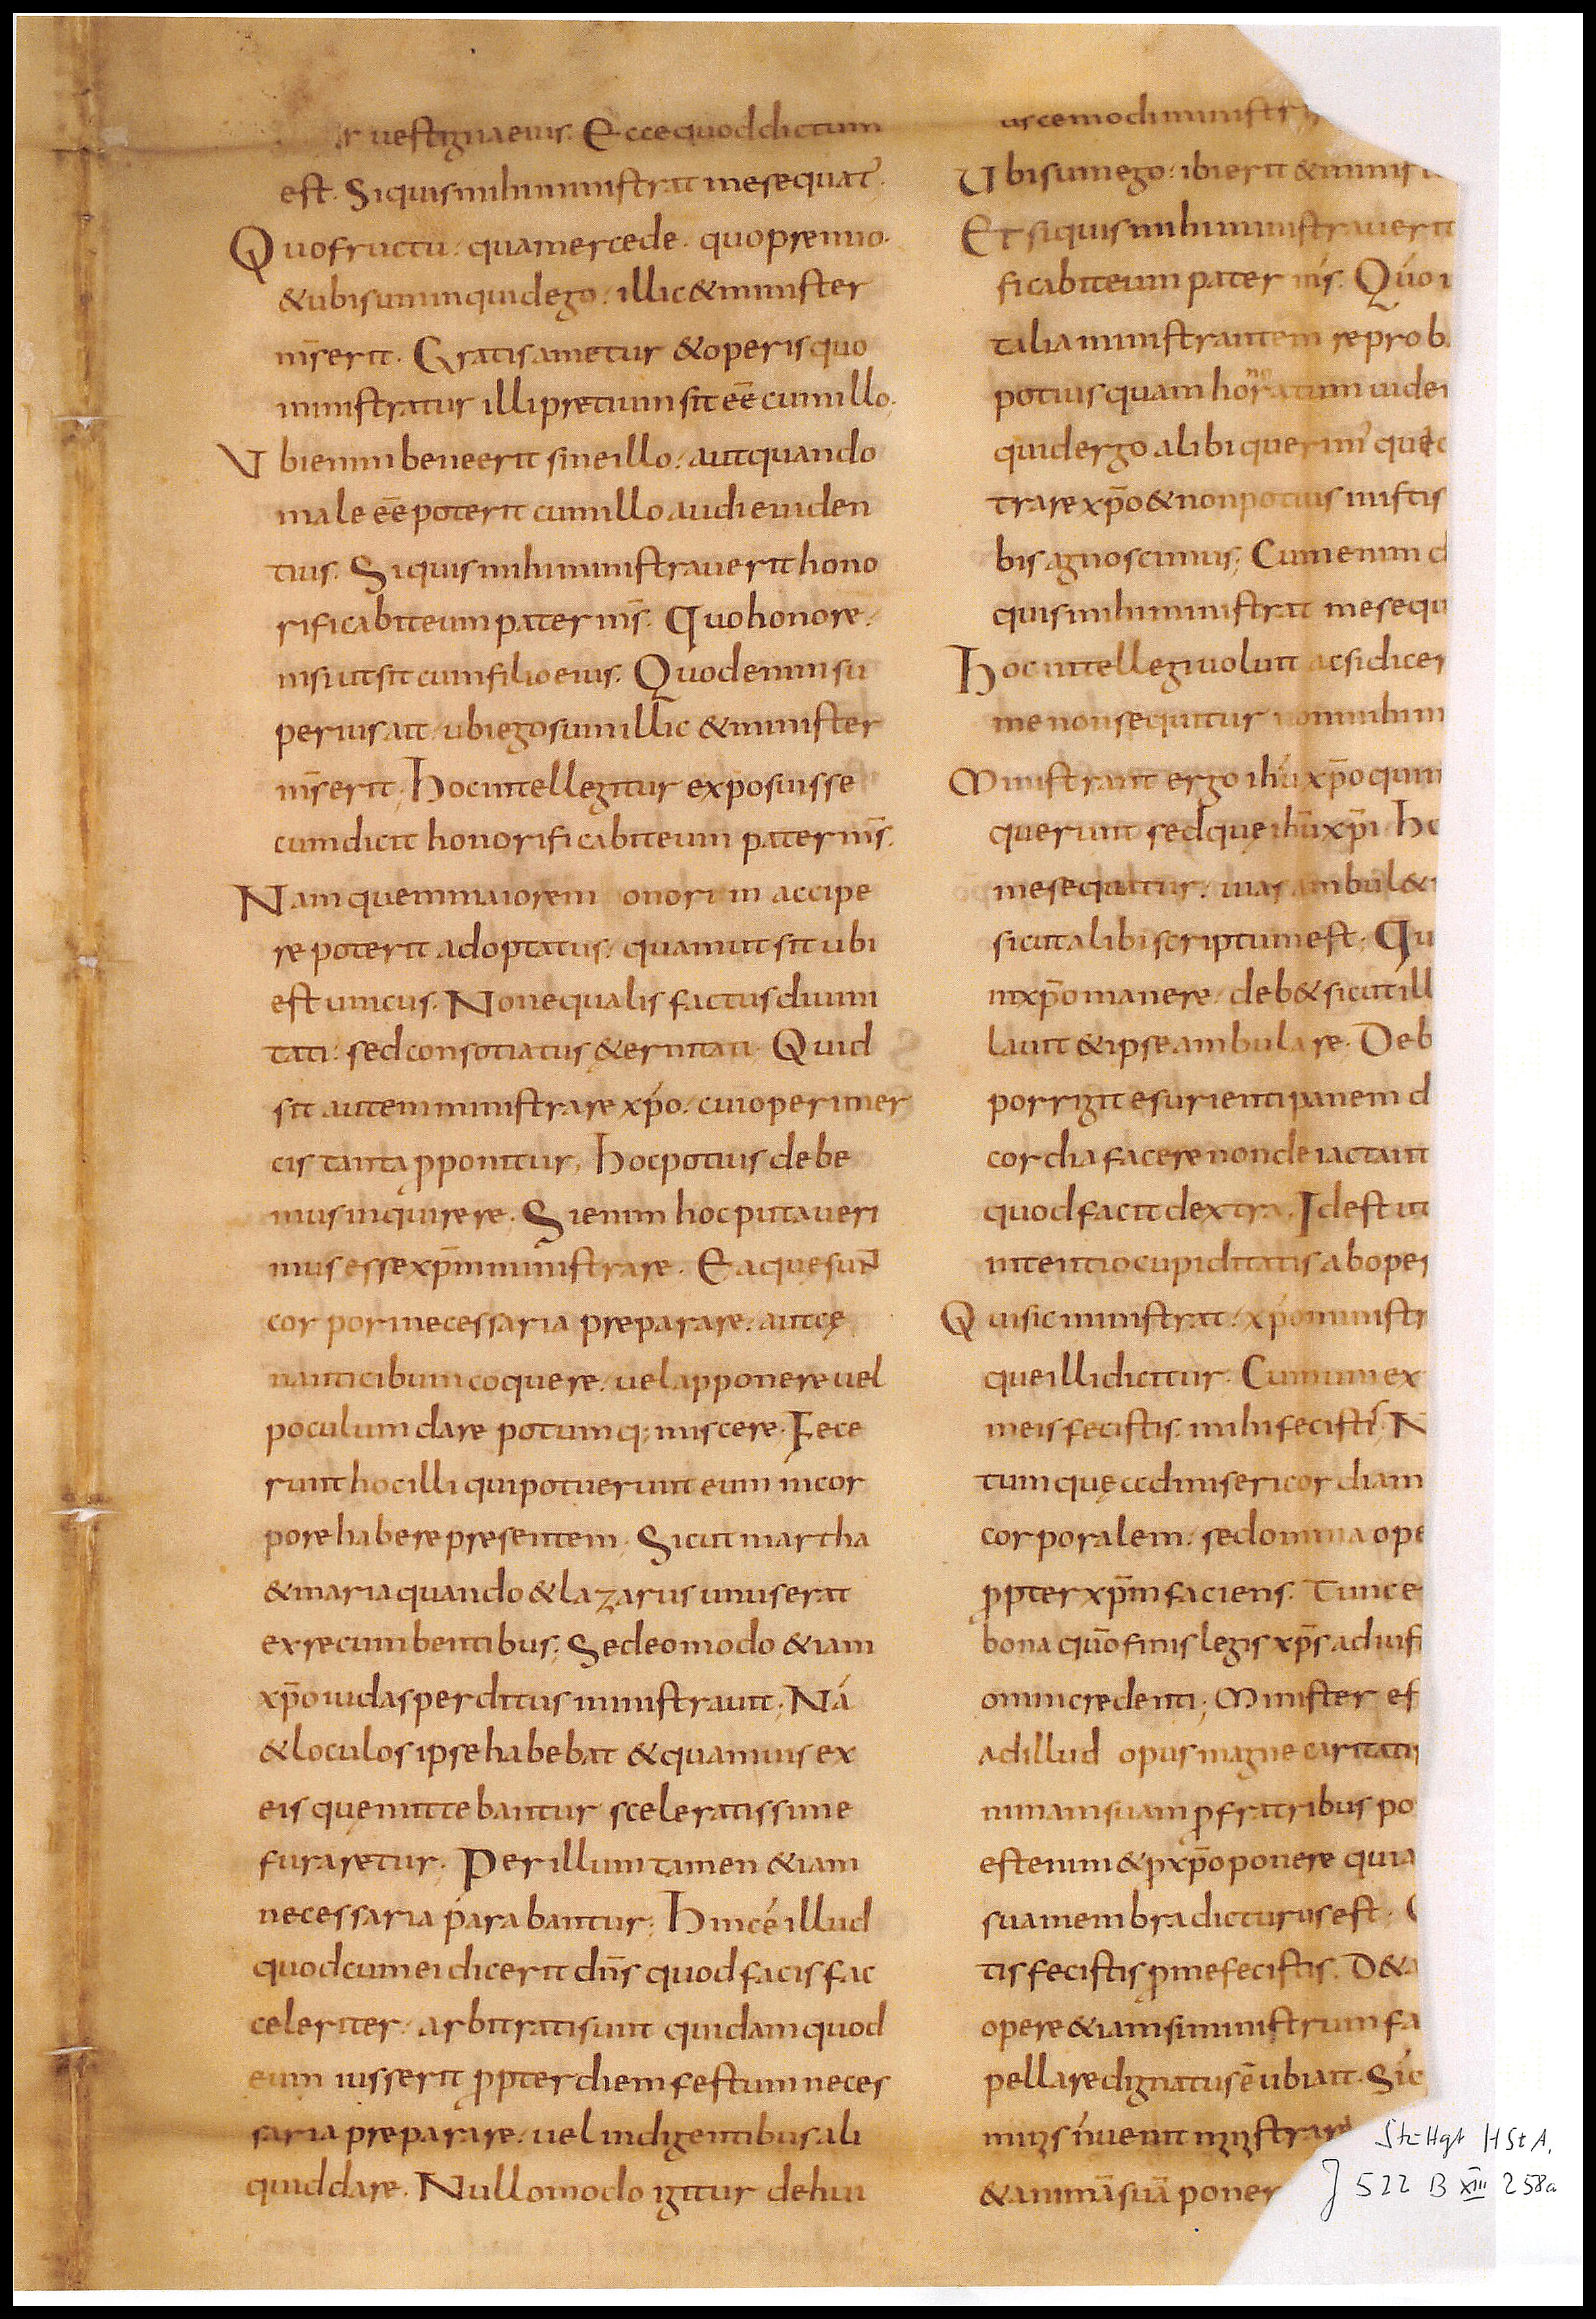 r uestigia eius. Ecce quod dictum
est. Siquis mihi ministrat me sequat᷑.
Quo fructu. qua mercede. quo premio.
& ubi sum inquid ego. illic & minister
m̄s erit. Gratis ametur & operis quo
ministratur illi pretium sit eē cum illo.
Vbi enim bene erit sine illo. aut quando
male eē poterit cum illo audi euiden
tius. Siquis mihi ministrauerit hono
rificabit eum pater m̄s. Quo honore.
nisi ut sit cum filio eius. Quod enim su
perius ait ubi ego sum illic & minister
m̄s erit; hoc intellegitur exposuisse
cum dicit honorificabit eum pater m̄s.
Nam quem maiorem onorem accipe
re poterit adoptatus. quam ut sit ubi
est unicus. Non equalis factus diuini
tati. sed consotiatus &ernitati. Quid
sit autem ministrare xp̄o. cui operi mer
cis tanta p̄ponitur, hoc potius debe
mus inquirere. Si enim hoc putaueri
mus esse xp̄m ministrare. Ea quę sunt
corpori necessaria preparare. aut cę
nanti cibum coquere. uel apponere uel
poculum dare potumq; miscere. Fece
runt hoc illi qui potuerunt eum in cor
pore habere presentem. Sicut martha
& maria quando & lazarus unus erat
ex recumbentibus; Sed eo modo &iam
xp̄o iudas perditus ministrauit; Nā
& loculos ipse habebat & quamuis ex
eis quę mittebantur sceleratissime
furaretur. Per illum tamen &iam
necessaria parabantur; Hinc ē illud
quod cum ei dicerit dn̄s quod facis fac
celeriter. arbitrati sunt quidam quod
eum iusserit p̄pter diem festum neces
saria preparare. uel indigentibus ali
quid dare. Nullo modo igitur dehui
uscemodi ministr
Ubi sum ego. ibi erit & minis
Et siquis mihi ministrauerit
ficabit eum pater m̄s. Quo
talia ministrantem reprob
potius quam honoratum uide
quid ergo alibi querim᷒ quid
trare xp̄o & non potius in istis
bis agnoscimus; Cum enim d
quis mihi ministrat me sequ
Hoc intellegi uoluit ac si dicer
me non sequitur non mihi m
Ministrant ergo ih̄u xp̄o qui n
querunt sed quę ih̄u xp̄i Ho
me sequatur. uias ambul&
sicut alibi scriptum est; Qu
in xp̄o manere. deb& sicut ill
lauit & ipse ambulare. Deb
porrigit esurienti panem d
cordia facere non de iactant
quod facit dextra. Id est ut
intentio cupiditatis ab oper
Qui sic ministrat. xp̄o ministr
que illi dicitur. Cum uni ex
meis fecistis. mihi fecistis. N
tum quę ad misericordiam
corporalem. sed omnia ope
p̄pter xp̄m faciens. Tunc e
bona qūo finis legis xp̄s ad iusti
omni credenti; Minister es
ad illud opus magne caritatis
nimam suam p̄ fratribus po
est enim & p̄ xp̄o ponere quia
sua membra dicturus est.
tis fecistis p̄ me fecistis. D&
opere &iam si ministrum fa
pellare dignatus ē ubi ait. Sic
minis uenit ministrare
& animā suā poner
Stuttgt HStA,
J 522 B XIII 258a